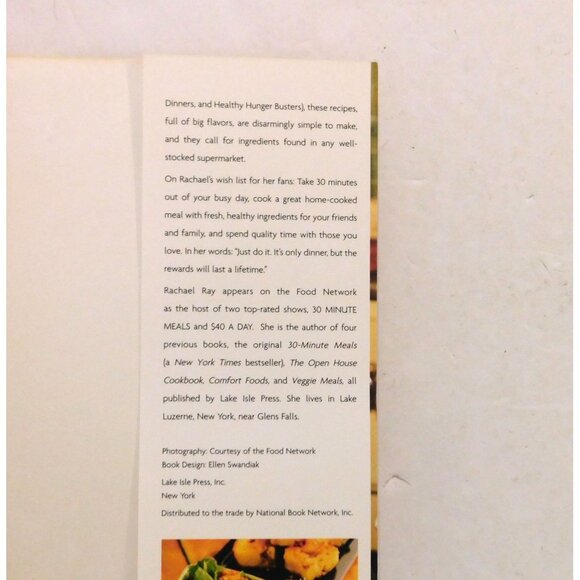 Dinners, and Healthy Hunger Busters), these recipes,
full of big flavors, are disarmingly simple to make,
and they call for ingredients found in any well-
stocked supermarket.
On Rachael's wish list for her fans: Take 30 minutes
out of your busy day, cook a great home-cooked
meal with fresh, healthy ingredients for your friends
and family, and spend quality time with those you
love. In her words: "Just do it. It's only dinner, but the
rewards will last a lifetime."
Rachael Ray appears on the Food Network
as the host of two top-rated shows, 30 MINUTE
MEALS and $40 A DAY. She is the author of four
previous books, the original 30-Minute Meals
(a New York Times bestseller), The Open House
Cookbook, Comfort Foods, and Veggie Meals, all
published by Lake Isle Press. She lives in Lake
Luzerne, New York, near Glens Falls.
Photography: Courtesy of the Food Network
Book Design: Ellen Swandiak
Lake Isle Press, Inc.
New York
Distributed to the trade by National Book Network, Inc.